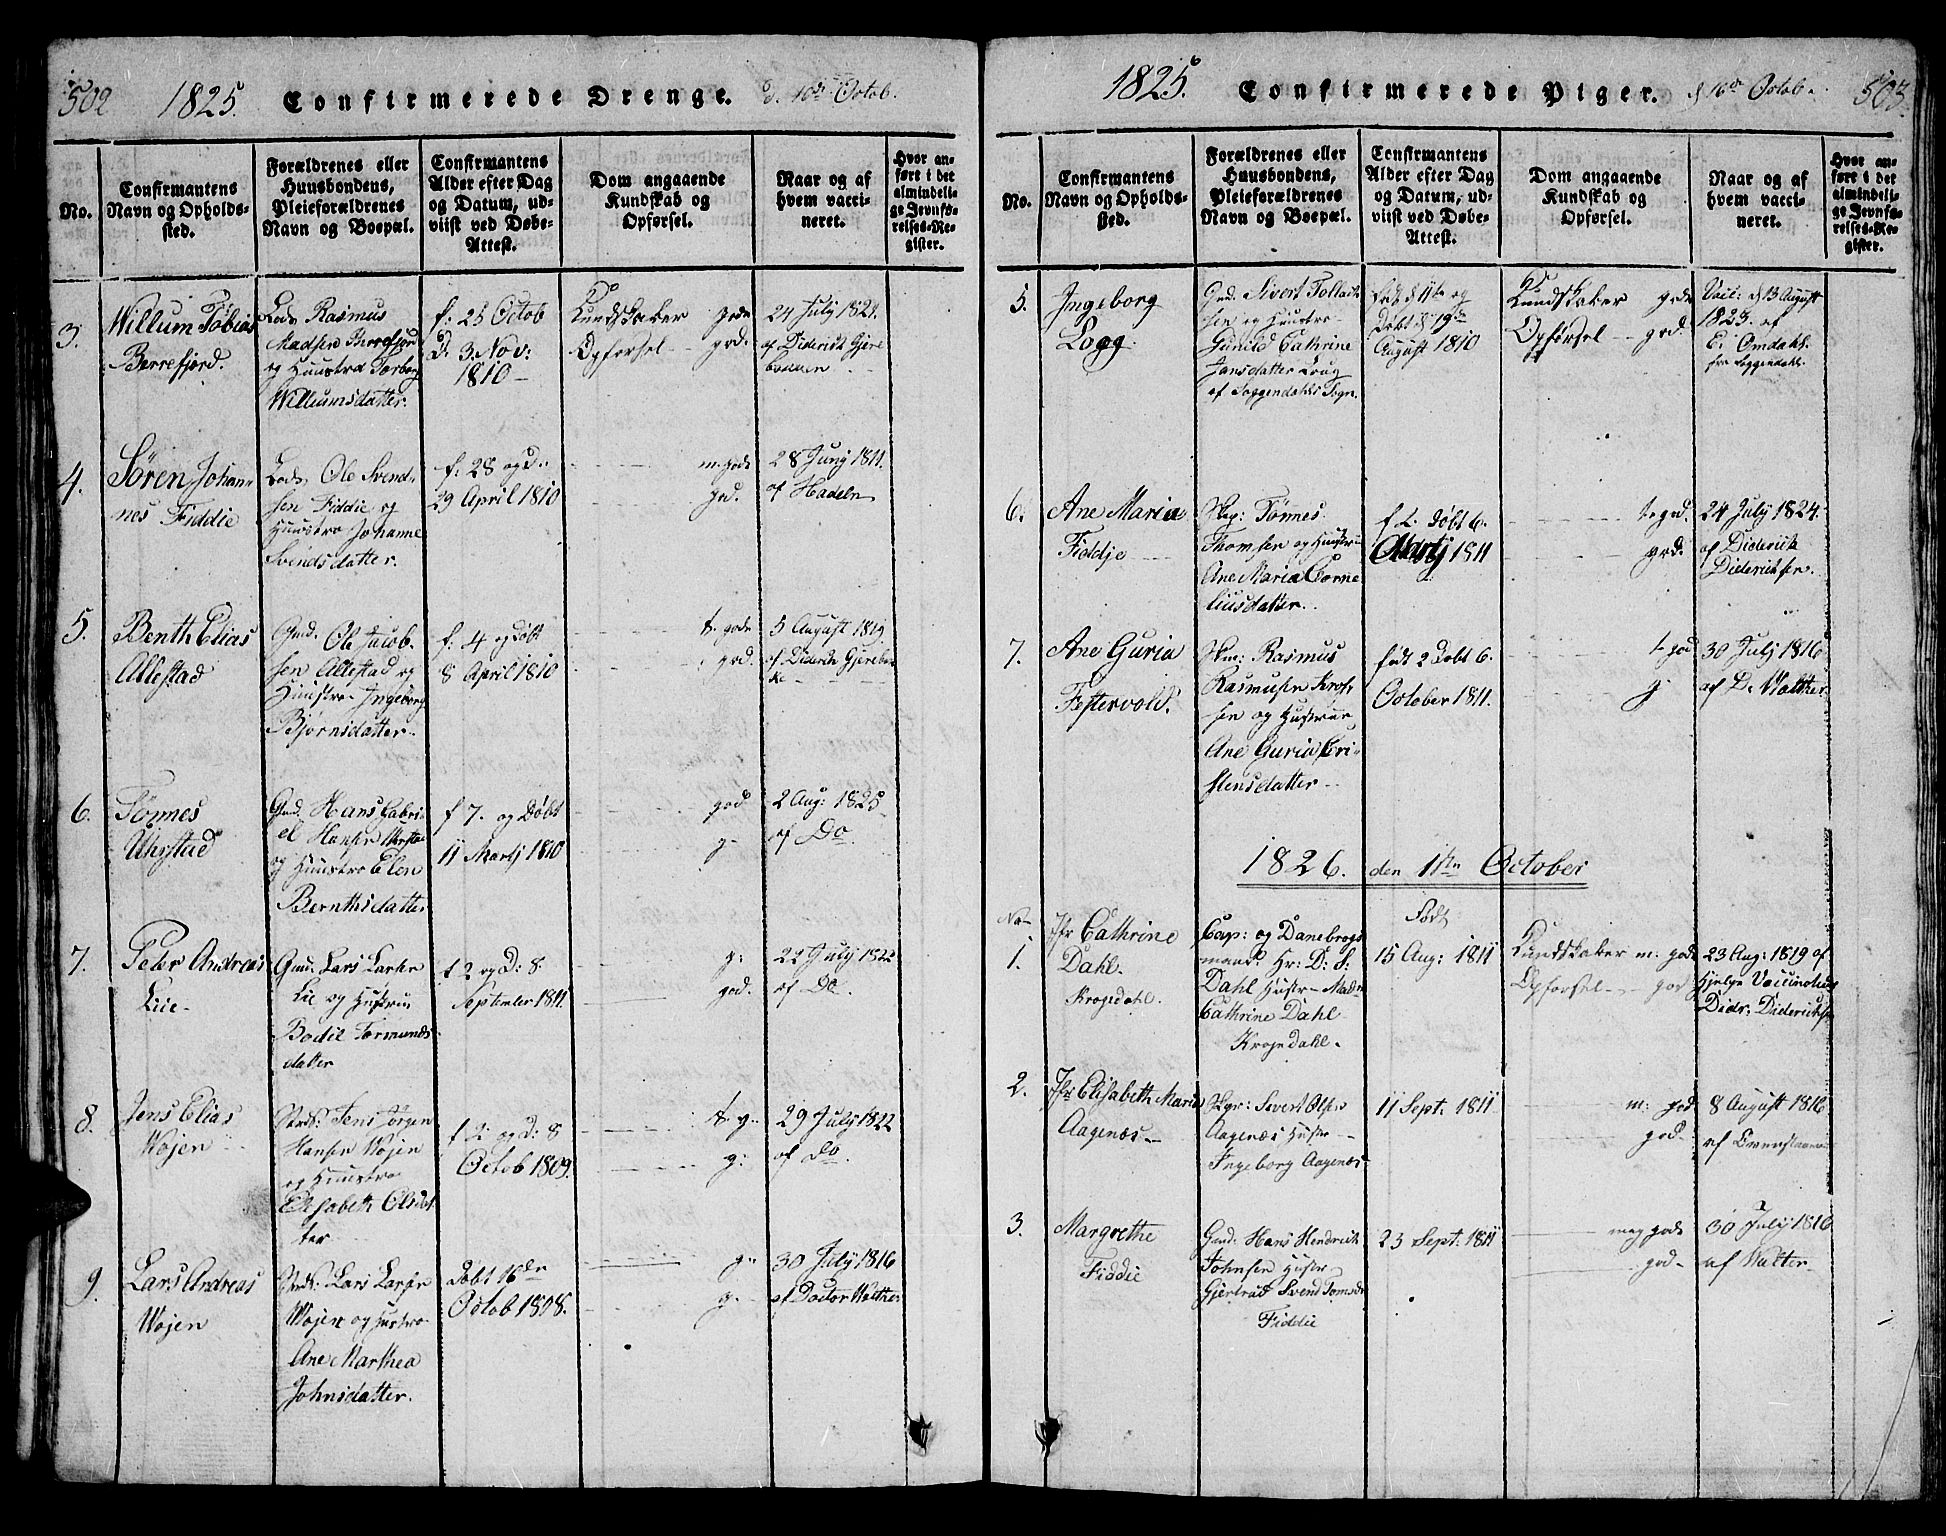 502 1825. Confirmerede Drenge. d. 16de Octob.
No.
Confirmantens
Navn og Opholds-
sted.
Forældrenes eller
Huusbondens,
Pleieforældrenes
Navn og Boepæl.
Confirmantens
Alder efter Dag
og Datum, ud-
viist ved Døbe-
Attest.
Dom angaaende
Kundskab og
Opførsel.
Naar og af
hvem vacci-
neret.
Hvor an-
ført i det
almindeli-
ge Jevnfø-
relses-Re-
gister.
3.
Willum Tobias
Berrefjord.
Rasmus
Madsen Berrefjord
og Huustro Torborg
Willumsdatter.
f. 25 Octob
D. 3 Nov:
1810
Kundskaber gode
Opførsel – god.
24 July 1824.
af Diderich Gjere
4.
Søren Johan-
nes Fiddie
Ole Svend-
sen Fiddie og
Huustro Johanne
Svendsdatter.
f: 28 og D.
29 April 1810
m. gode
god.
28 Juny 1811.
af Hadeln
5.
Benth Elias
Allestad
Gmd. Ole Jacob-
sen Allestad og
Huustro Ingeborg
Bjørnsdatter.
f. 4 og døbt
8 April 1810
t. gode
god.
5 August 1819
af Diderich Gjerebak-
ke
6.
Tønnes
Urstad
Gmd. Hans Gabri-
el Hansen Urstad
og Huustro Elen
Bernthsdatter
f 7. og Døbt
11 Martj 1810
god
g
2 Aug: 1825
af Do
7.
Peter Andreas
Lie
Gmd. Lars Larsen
Lie og Hustrue
Bodil Tormunds-
datter
f 2 og D: 8.
September 1811.
g:
god.
22 July 1822
af Do.
8.
Jens Elias
Wojen
Jens Jørgen
Hansen Wojen
og Huustro
Elisabeth Olsdat-
ter
f 2 og D: 8
Octob 1809.
t. g
g:
29 July 1822
af Do.
9.
Lars Andreas
Wojen
Lars Larsen
Wojen og Hustro
Ane Marthea
Johnsdatter.
Døbt 16de
Octob 1808.
g.
g.
30 July 1816
af Doctor Walther
1825. Confirmerede Piger. d 16de Octob. 503.
No.
Confirmantens
Navn og Opholds-
sted.
Forældrenes eller
Huusbondens,
Pleieforældrenes
Navn og Boepæl.
Confirmantens
Alder efter Dag
og Datum, ud-
viist ved Døbe-
Attest.
Dom angaaende
Kundskab og
Opførsel.
Naar og af
hvem vacci-
neret.
Hvor an-
ført i det
almindeli-
ge Jevnfø-
relses-Re-
gister.
5.
Ingeborg
Logg.
Gmd. Sivert Tollach-
sen og Huustro
Gunild Cathrine
Jansdatter Loug
af Soggendahls Sogn.
født d 11te og
Døbt d 19de
August 1810
Kundskaber gode
Opførsel – god.
Vacc: d 13 August
1823. af
E. Omdahl.
fra Soggendahl.
6.
Ane Maria
Fiddje
Tønnes
Thomsen og Hustrue
Ane Maria Corne
liusdatter.
f 2. døbt 6.
Martj 1811
t. god.
god.
24 July 1824.
af Diderich
Diderichsen.
7.
Ane Guria
Festervold.
Rasmus
Rasmusen
sen og Hustrue
Ane Guria Cri-
stensdatter
født 2 døbt 6.
October 1811.
t god
g
30 July 1816
af D. Walther.
1826. den 1ste October
No
Født
1.
Jfr Cathrine
Dahl.
Krogedahl.
Cap: og Danebrogs
mand: Hr: D: S:
Dahl Hustr Madm
Cathrine Dahl
Krogedahl.
15 Aug: 1811
Kundskaber m: gode
Opførsel – god
23 Aug: 1819 af
Hjelpe Vaccinateur
Didr: Diderichsen
2.
Jfr Elisabeth Maria
Aagenæs
Sivert Olsen
Aagenæs Hustr
Ingeborg Aagenæs
11 Sept: 1811
m: god
god
8 August 1816
af
3.
Margrethe
Fiddie
Gmd. Hans Hendrich
Johnsen Hustr
Gjertrud Svend Tomsd.
Fiddie
23 Sept: 1811
meg gode
god
30 July 1816
af Walter